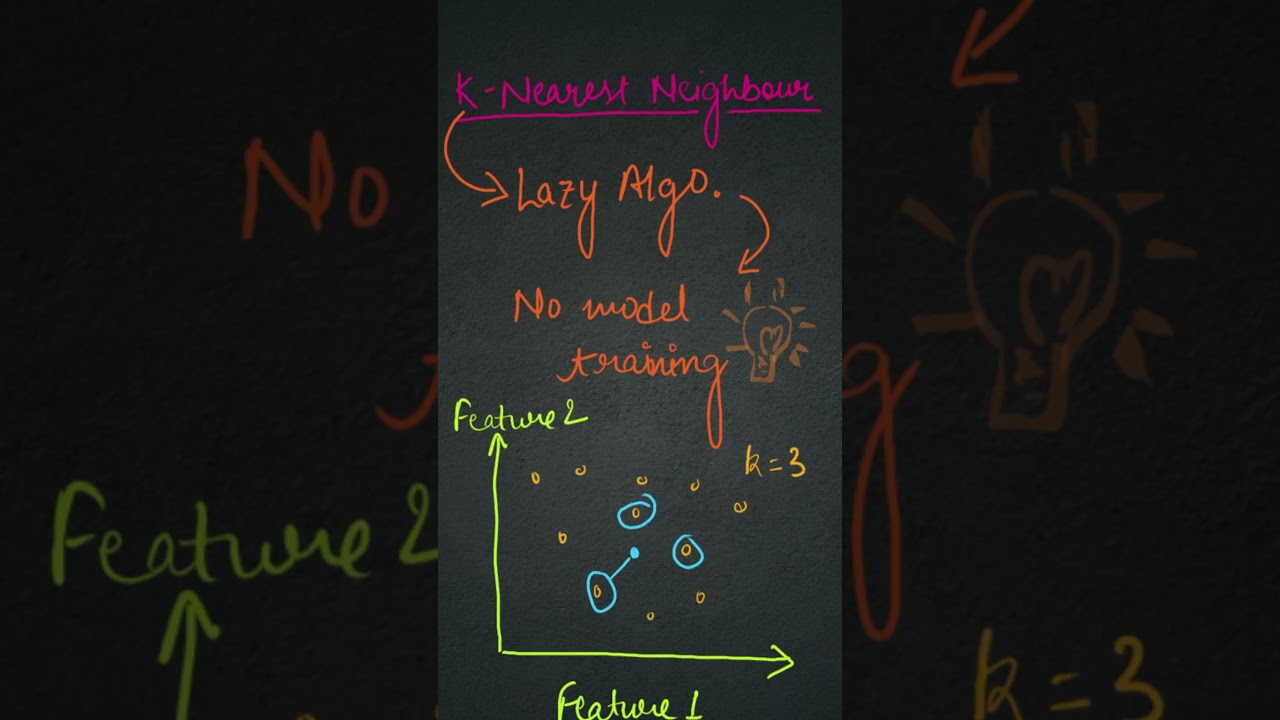 K-Nearest Neighbour
Lazy Algo.
No model
training
Feature 2
k = 3
Feature 1
No
g
Feature 2
k = 3